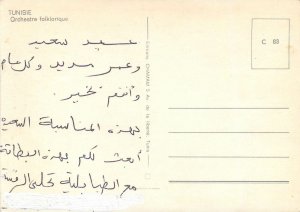 TUNISIE
Orchestre folklorique
C 83
عيد سعيد
وعمر مديد وكل عام
وأنتم بخير
بهذه المناسبة السعيدة
أبعث لكم بهذه البطاقة
مع الطبابلية تحلى الرقصة
Editions CHAMAM 5, Av. de la liberté, Tunis